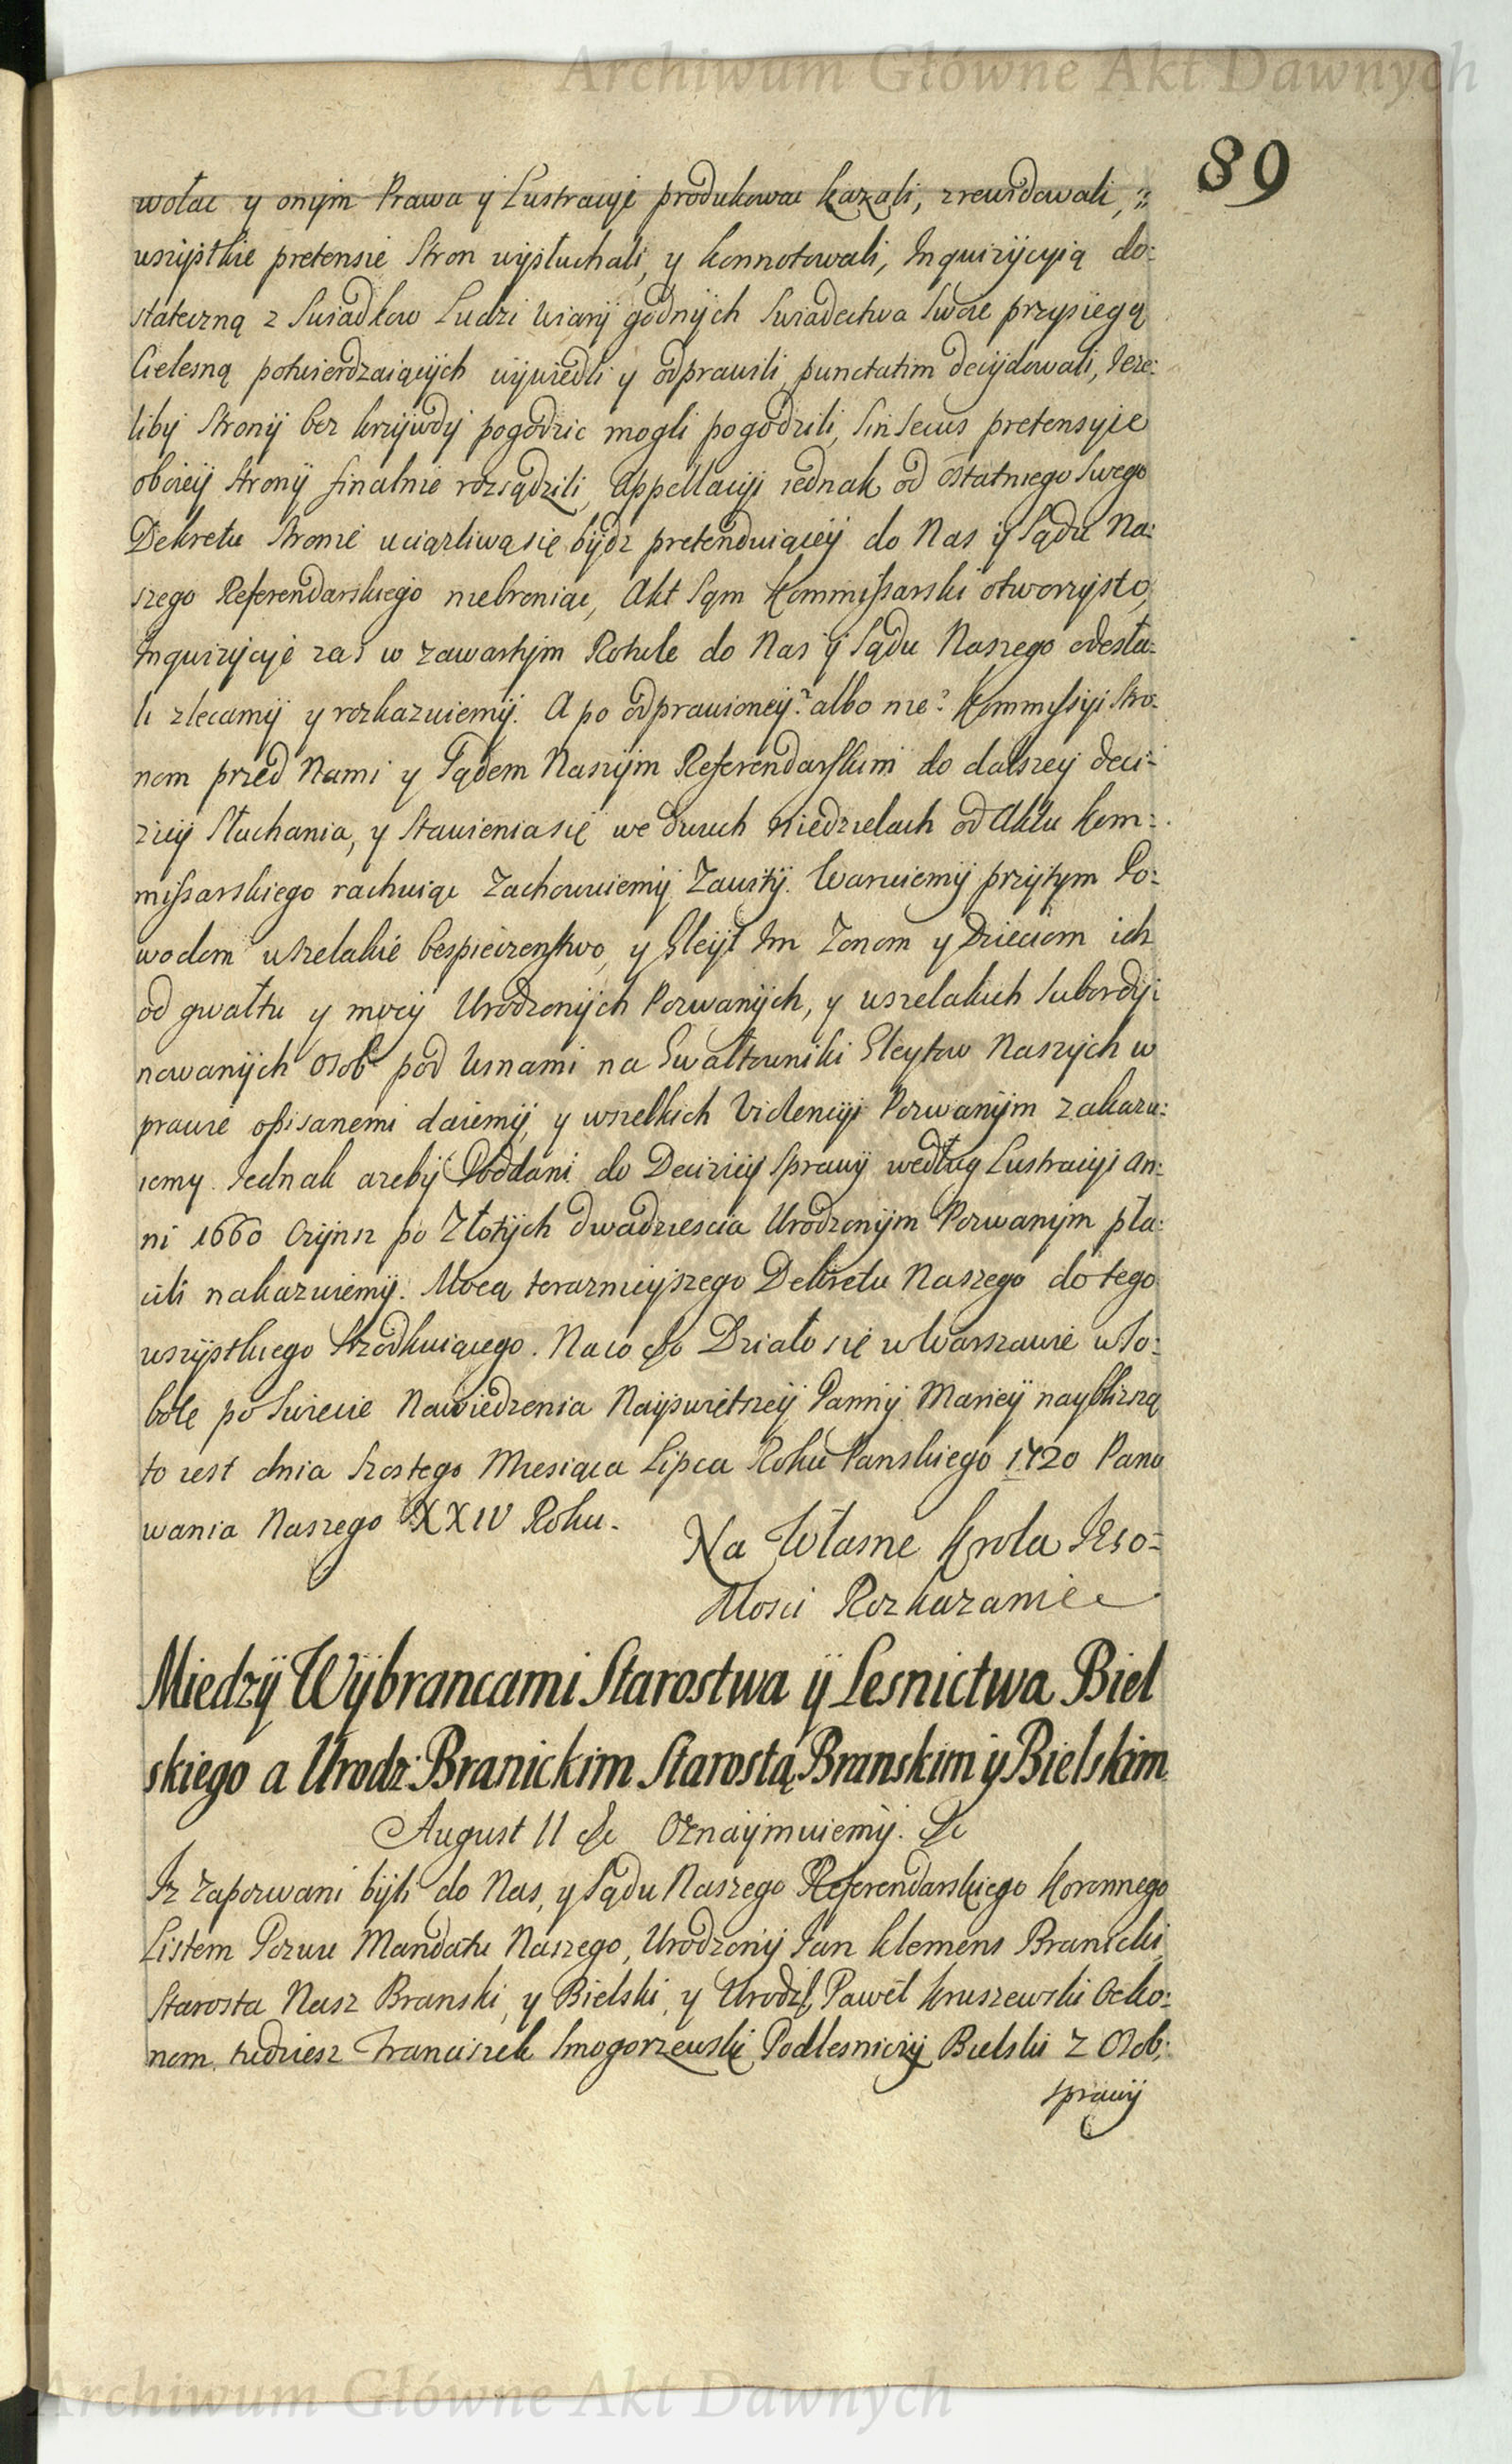 Archiwum Główne Akt Dawnych
89
wołac y onÿm Prawa ÿ Lustracÿi produkowac kazali, zrewidowali,
wszÿstkie pretensie Stron wÿsłuchali, y konnotowali, Inquizÿcyią do:
stateczną z Swiadkow Ludzi Wiarÿ godnÿch Swiadectwa Swoie przysięgą
Cielesną potwierdzaiącÿch wÿwiedli y odprawili, punctatim decÿdowali, Ieze:
libÿ Stronÿ bez krzÿwdÿ pogodzic mogli pogodzili, Sin Secus pretensyie
oboieÿ Stronÿ finalnie rozsądzili, Appellacÿi iednak od ostatniego Swego
Dekretu Stronie uciązliwą się bÿdz pretenduiąceÿ do Nas ÿ Sądu Na:
szego Referendarskiego niebroniąc, Akt Sąm Kommissarski otworzÿsto,
Inquizÿcyie zas w zawartÿm Rotule do Nas ÿ Sądu Naszego odesła:
li zlecamÿ y rozkazuiemÿ. A po odprawioneÿ? albo nie? Kommissÿi Stro:
nom przed Nami y Sądem Naszÿm Referendarskim do dalszeÿ deci:
ziÿ Słuchania, y Stawienia się we dwuch Niedzielach od Aktu Kom:
missarskiego rachuiąc Zachowuiemÿ Zawitÿ. Waruiemÿ przÿtym Po:
wodom wszelakie bespieczenstwo, y Gleÿt Im Zonom y Dzieciom ich
od gwałtu y mocÿ Urodzonÿch Pozwanÿch, y wszelakich Subordÿ:
nowanÿch Osob pod Winami na Gwałtowniki Gleytow Naszÿch w
prawie opisanemi daiemÿ, y wszelkich Violencÿi Pozwanÿm zakazu:
iemy. Iednak azebÿ Poddani do Deciziÿ Sprawÿ według Lustracÿi An:
ni 1660 Czÿnsz po Złotÿch dwadziescia Urodzonÿm Pozwanÿm pła:
cili nakazuiemÿ. Mocą terazniejszego Dekretu Naszego do tego
wszÿstkiego Srzodkuiącego. Na co &c Działo się w Warszawie w So:
botę po Swiecie Nawiedzenia Nayswiętszeÿ Pannÿ Marieÿ nayblizszą
to iest dnia Szostego Miesiąca Lipca Roku Panskiego 1720 Pano
wania Naszego XXIV Roku.
Na Własne Krola Iego=
Mosci Rozkazanie
Miedzÿ Wÿbrancami Starostwa ÿ Lesnictwa Biel
skiego a Urodz: Branickim Starostą Branskim ÿ Bielskim
August II &c Oznaÿmuiemÿ. &c
Iz Zapozwani bÿli do Nas, y Sądu Naszego Referendarskiego Koronnego
Listem Pozwu Mandatu Naszego, Urodzonÿ Ian Klemens Branicki,
Starosta Nasz Branski, y Bielski, y Urodz: Paweł Kruszewski Oeko:
nom, tudziesz Franciszek Smogorzewski Podlesniczÿ Bielski Z Osob:
sprawÿ
Archiwum Główne Akt Dawnych